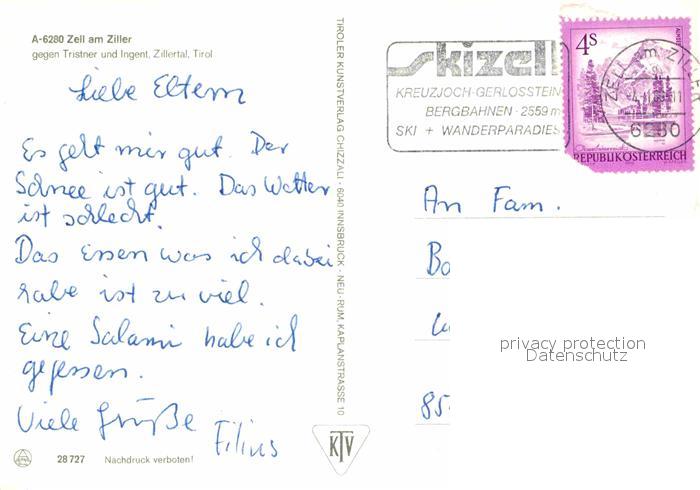 A-6280 Zell am Ziller
gegen Tristner und Ingent, Zillertal, Tirol
Liebe Eltern
Es geht mir gut. Der
Schnee ist gut. Das Wetter
ist schlecht.
Das Essen was ich dabei
habe ist zu viel.
Eine Salami habe ich
gegessen.
Viele Grüße
Filius
28 727 Nachdruck verboten!
TIROLER KUNSTVERLAG CHIZZALI · 6040 INNSBRUCK - NEU-RUM, KAPLANSTRASSE 10
KTV
skizell
KREUZJOCH-GERLOSSTEIN
BERGBAHNEN · 2559 m
SKI + WANDERPARADIES
4s
REPUBLIK ÖSTERREICH
ZELL am ZILLER
6280
An Fam.
Bo
85
privacy protection
Datenschutz